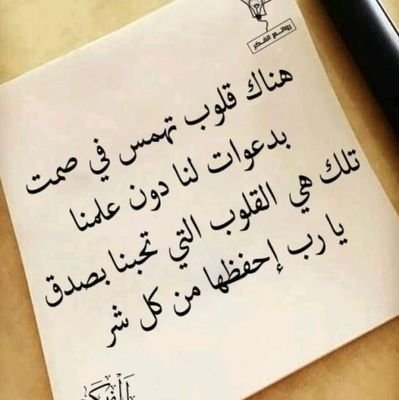 روائع الفكر
هناك قلوب تهمس في صمت
بدعوات لنا دون علمنا
تلك هي القلوب التي تحبنا بصدق
يا رب إحفظها من كل شر